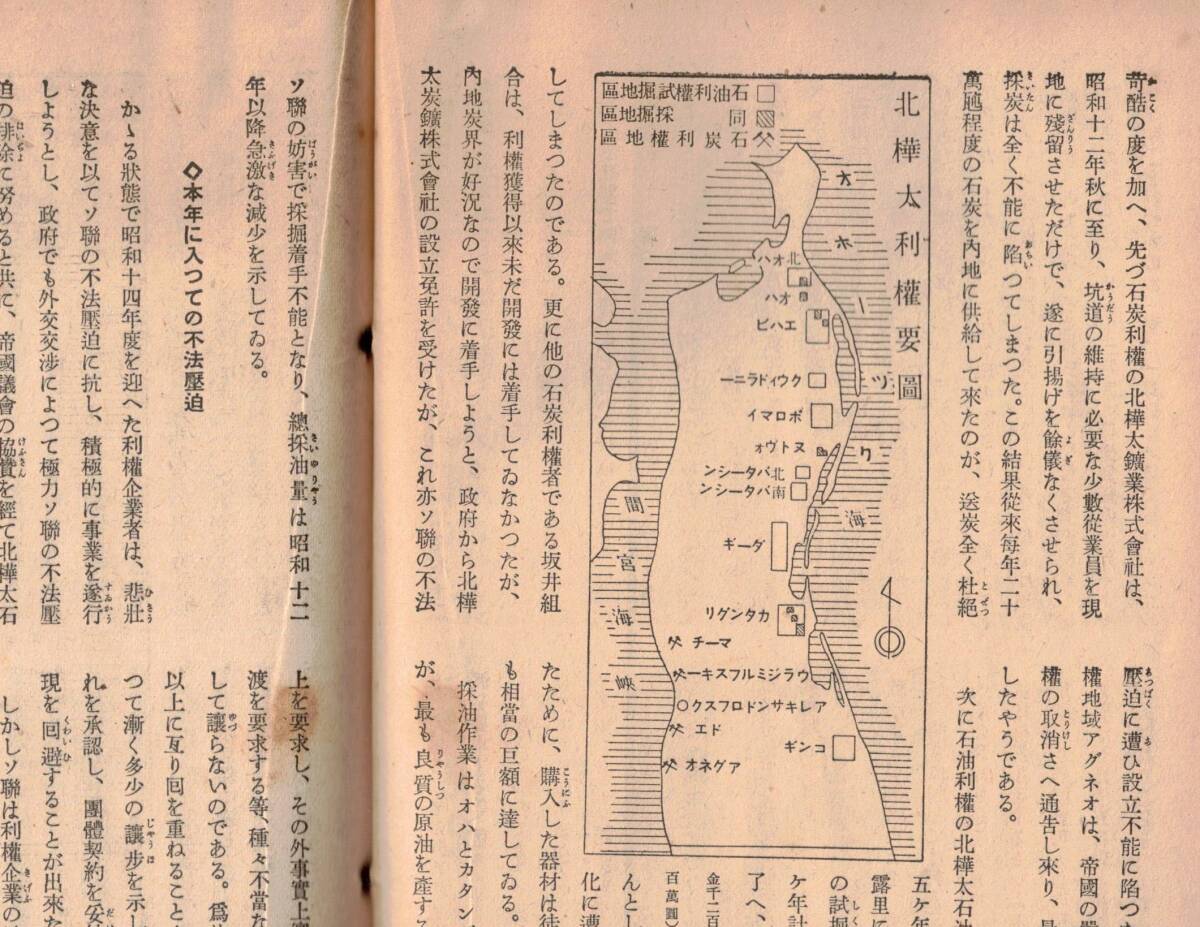 苛酷の度を加へ、先づ石炭利權の北樺太鑛業株式會社は、
昭和十二年秋に至り、坑道の維持に必要な少數從業員を現
地に殘留させただけで、遂に引揚げを餘儀なくさせられ、
採炭は全く不能に陷つてしまつた。この結果從來每年二十
萬瓲程度の石炭を內地に供給して來たのが、送炭全く杜絕
北樺太利權要圖
石油利權試掘地區
同 採掘地區
石炭利權地區
オホーツク海
間宮海峽
北オハ
オハ
エハビ
クウィドラニー
ボロマイ
ヌトウォ
北バターシン
南バターシン
ダーギー
カタングリ
マーチ
ウラジミルフスキー
アレキサンドロフスク
ドエ
アグネオ
コンギ
してしまつたのである。更に他の石炭利權者である坂井組
合は、利權獲得以來未だ開發には着手してゐなかつたが、
內地炭界が好況なので開發に着手しようと、政府から北樺
太炭鑛株式會社の設立免許を受けたが、これ亦ソ聯の不法
壓迫に遭ひ設立不能に陷つた
權地域アグネオは、帝國の嚴
權の取消さへ通吿し來り、
したやうである。
次に石油利權の北樺太石油
五ケ年
露里に
の試掘
ケ年計
了へ、
金千二百
百萬圓)
んとし
化に遭
たために、購入した器材は徒
も相當の巨額に達してゐる。
採油作業はオハとカタン
が、最も良質の原油を產する
ソ聯の妨害で採掘着手不能となり、總採油量は昭和十二
年以降急激な減少を示してゐる。
◇本年に入つての不法壓迫
かゝる狀態で昭和十四年度を迎へた利權企業者は、悲壯
な決意を以てソ聯の不法壓迫に抗し、積極的に事業を遂行
しようとし、政府でも外交交涉によつて極力ソ聯の不法壓
迫の排除に努めると共に、帝國議會の協贊を經て北樺太石
上を要求し、その外事實上
渡を要求する等、種々不當な
して讓らないのである。爲
以上に亙り回を重ねること
つて漸く多少の讓步を示し
れを承認し、團體契約を
現を回避することが出來た
しかしソ聯は利權企業の